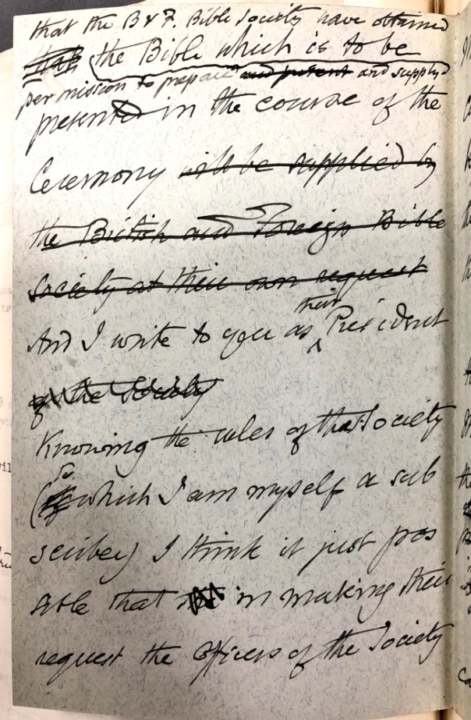 that the B & F. Bible Society have obtained
that the Bible which is to be
permission to prepare and present and supply
presented in the course of the
Ceremony will be supplied by
the British and Foreign Bible
Society at their own request
And I write to you as their President
of the Society
Knowing the rules of that Society
(to which I am myself a sub
scriber) I think it just pos
sible that in making their
request the Officers of the Society